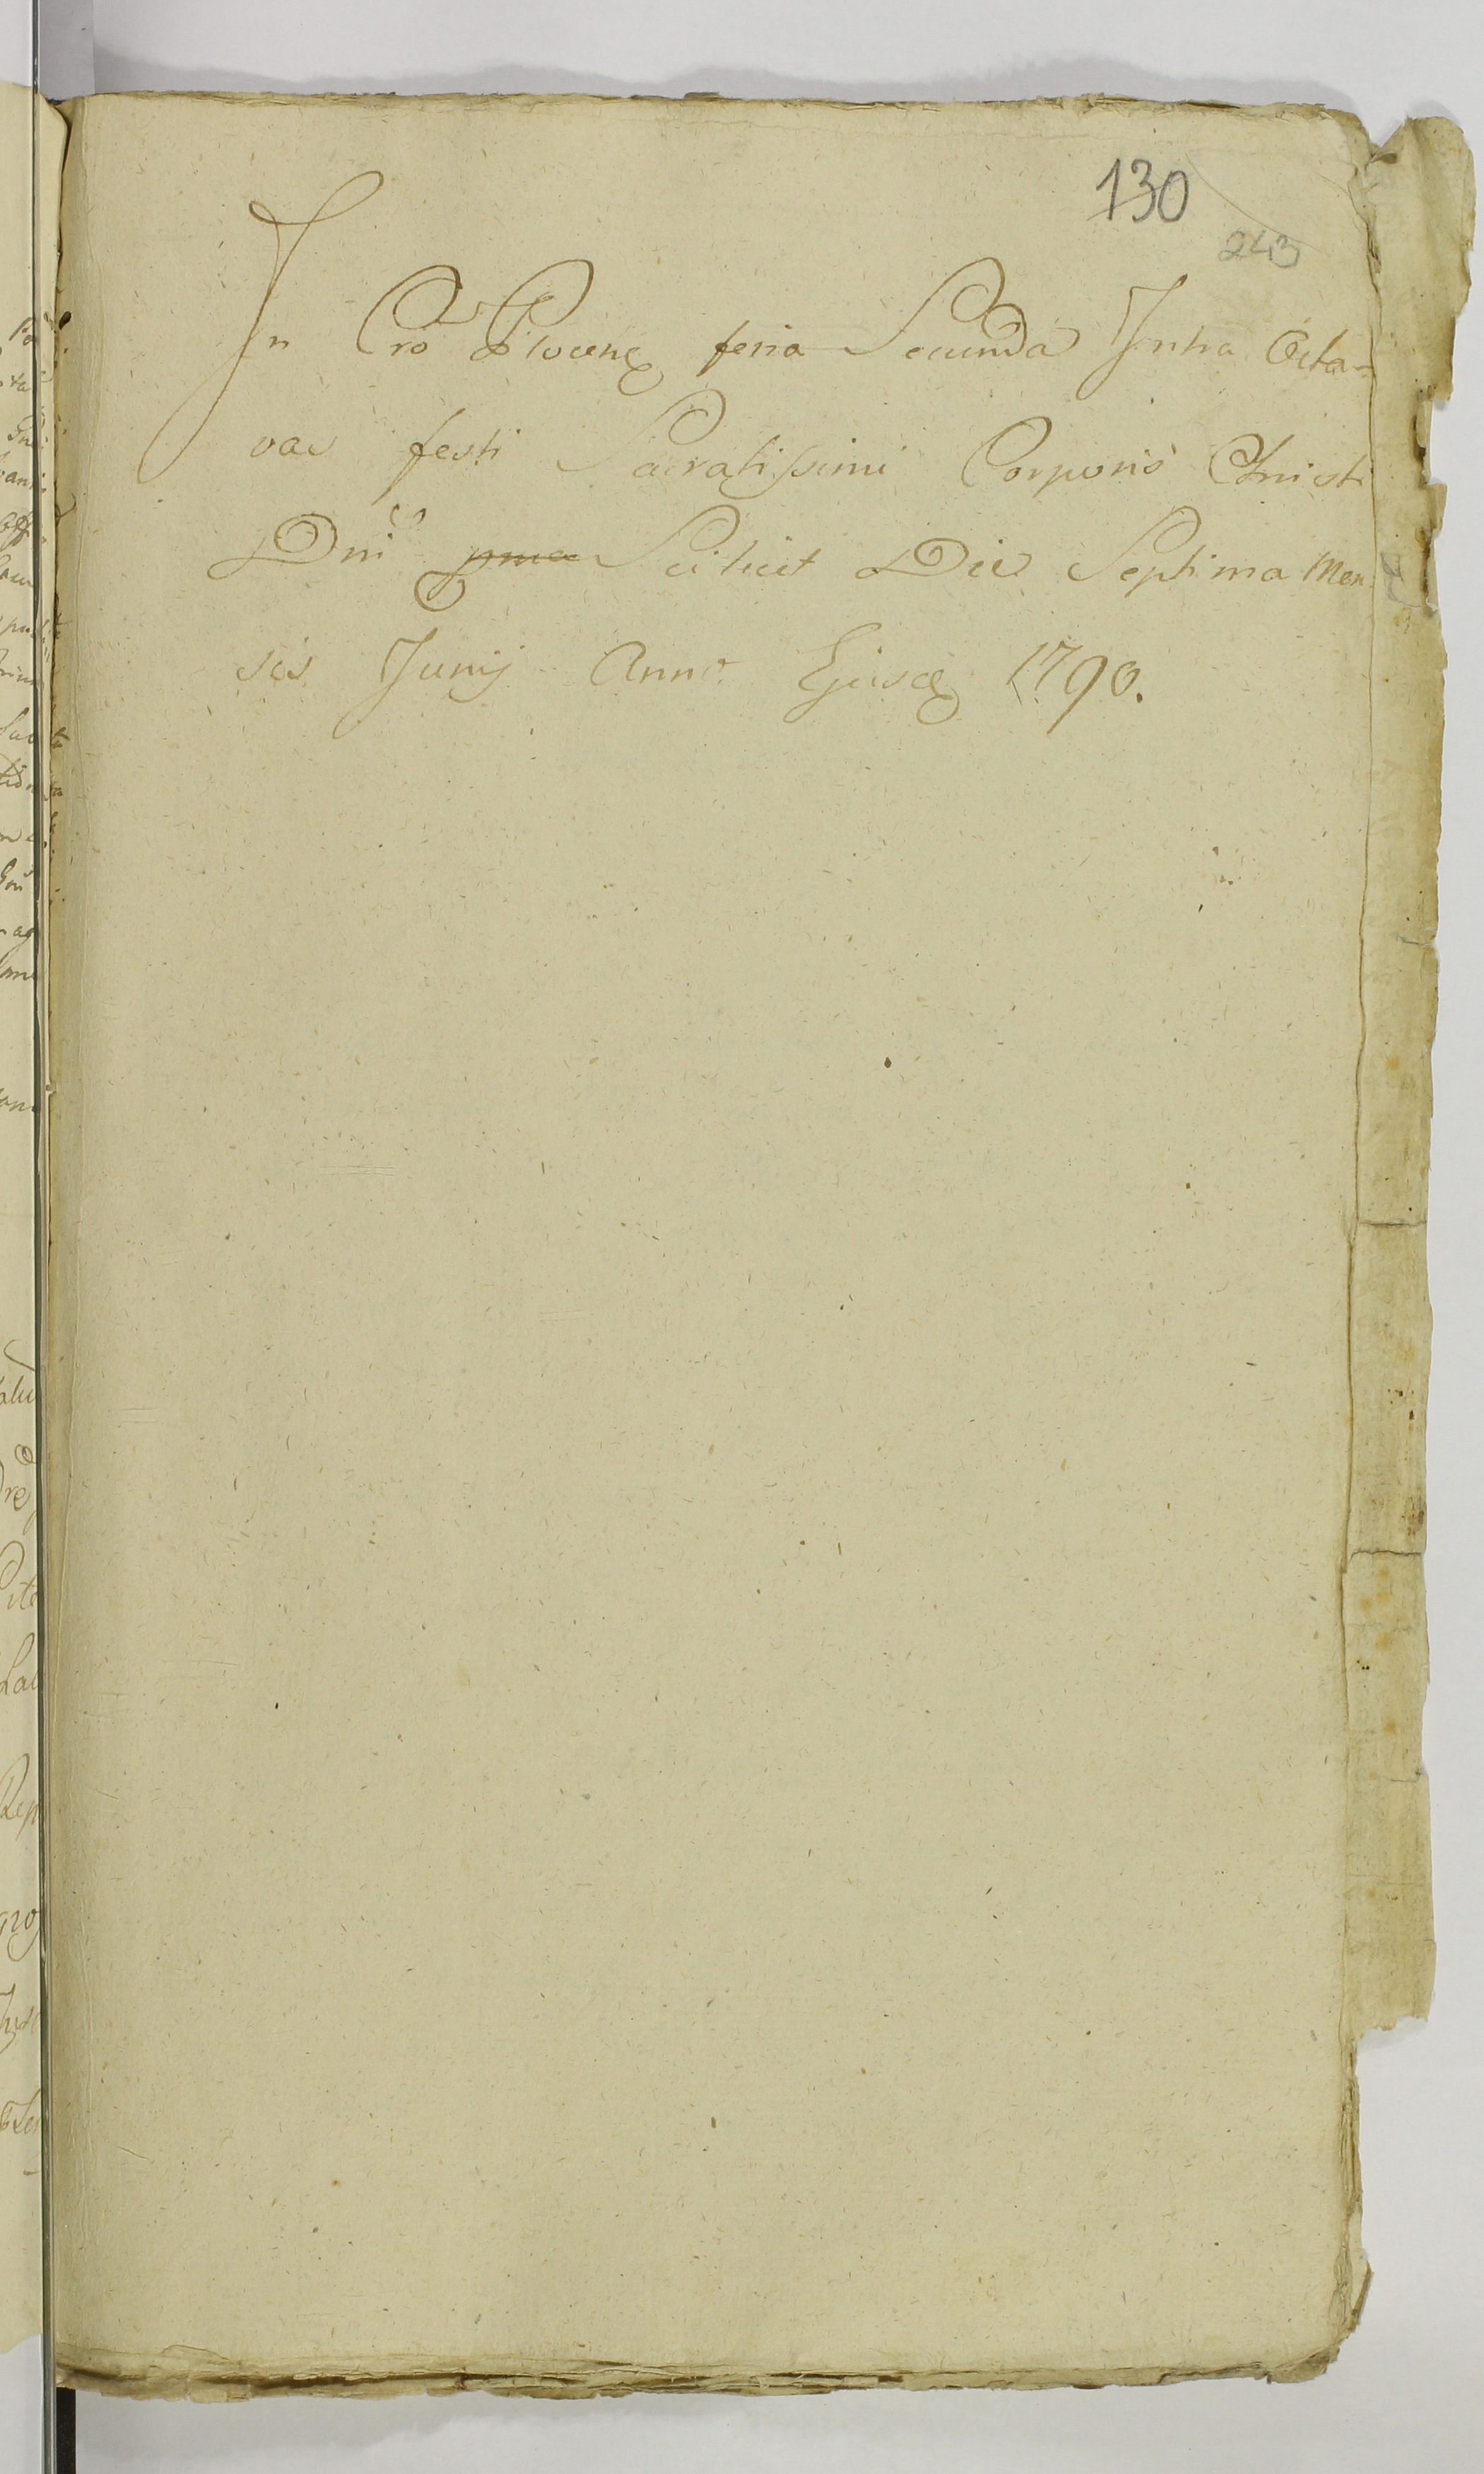 130
243
In Cro Plocen feria Secunda Intra Octa-
vas festi Sacratissimi Corporis Christi
Dni Scilicet Die Septima Men
sis Junij Anno Ejusd 1790.